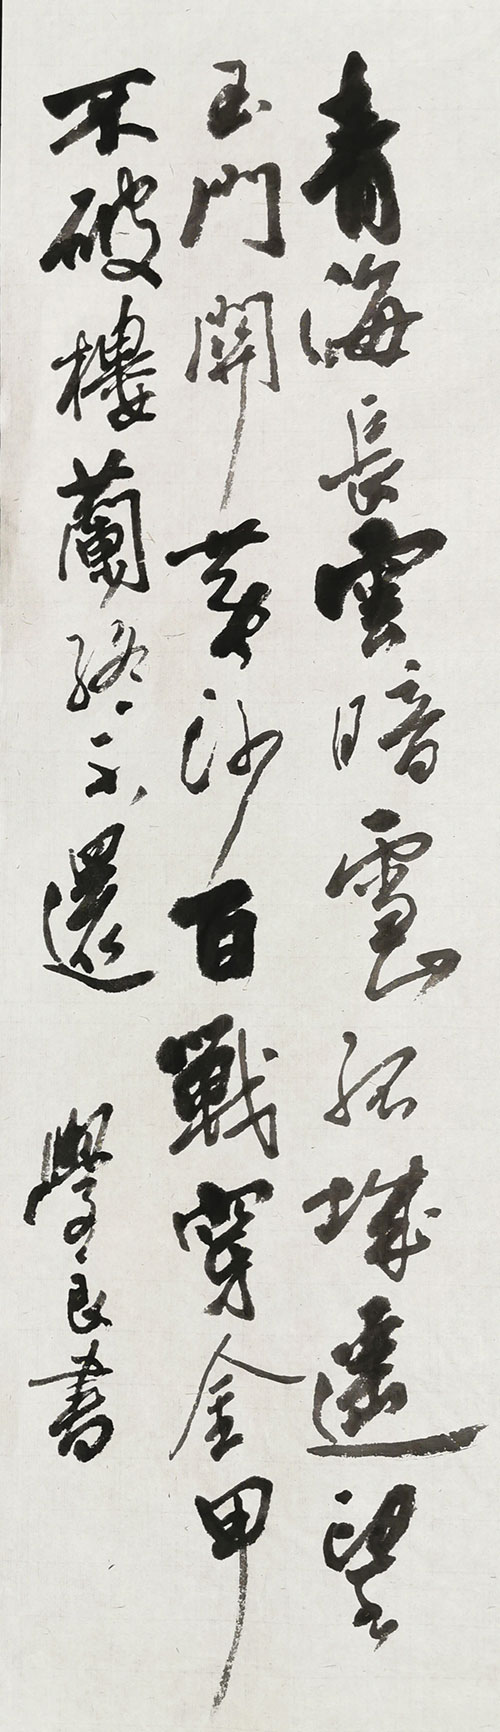 青海長雲暗雪山孤城遥望
玉門関黄沙百戰穿金甲
不破樓蘭終不還
學良書